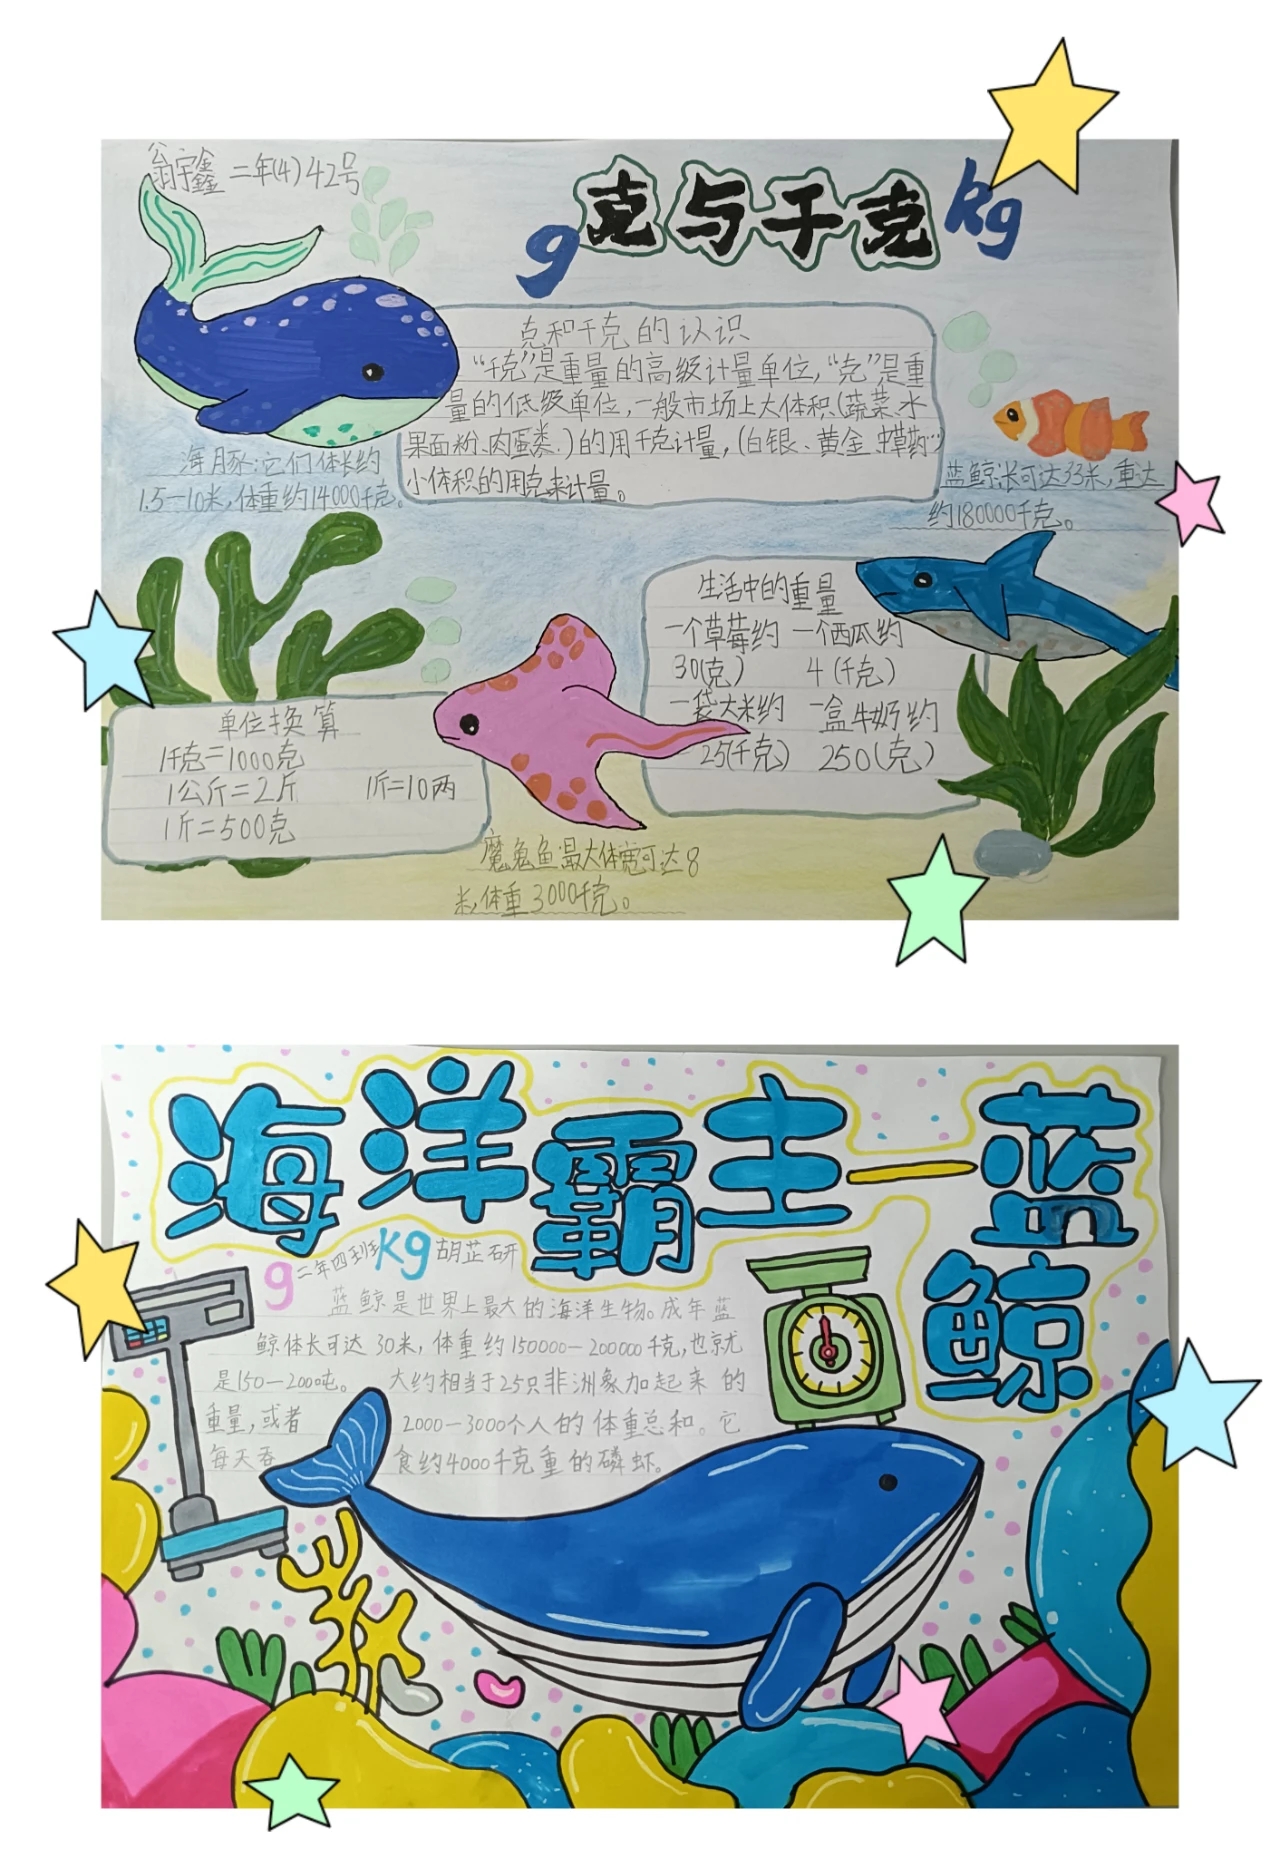 翁宇鑫 二年(4) 42号
g 克与千克 kg
克和千克的认识
“千克”是重量的高级计量单位，“克”是重
量的低级单位，一般市场上大体积(蔬菜、水
果面粉、肉蛋类.)的用千克计量，(白银、黄金、中草药…
小体积的用克来计量。
海豚:它们体长约
1.5—10米，体重约14000千克。
蓝鲸:长可达33米，重达
约180000千克。
生活中的重量
一个草莓约 一个西瓜约
30(克) 4(千克)
一袋大米约 一盒牛奶约
25(千克) 250(克)
单位换算
1千克=1000克
1公斤=2斤 1斤=10两
1斤=500克
魔鬼鱼最大体宽可达8
米，体重3000千克。
海洋霸主—蓝
鲸
g 二年四班 kg 胡芷研
蓝鲸是世界上最大的海洋生物。成年蓝
鲸体长可达30米，体重约150000—200000千克，也就
是150—200吨。 大约相当于25只非洲象加起来的
重量，或者 2000—3000个人的体重总和。它
每天吞 食约4000千克重的磷虾。